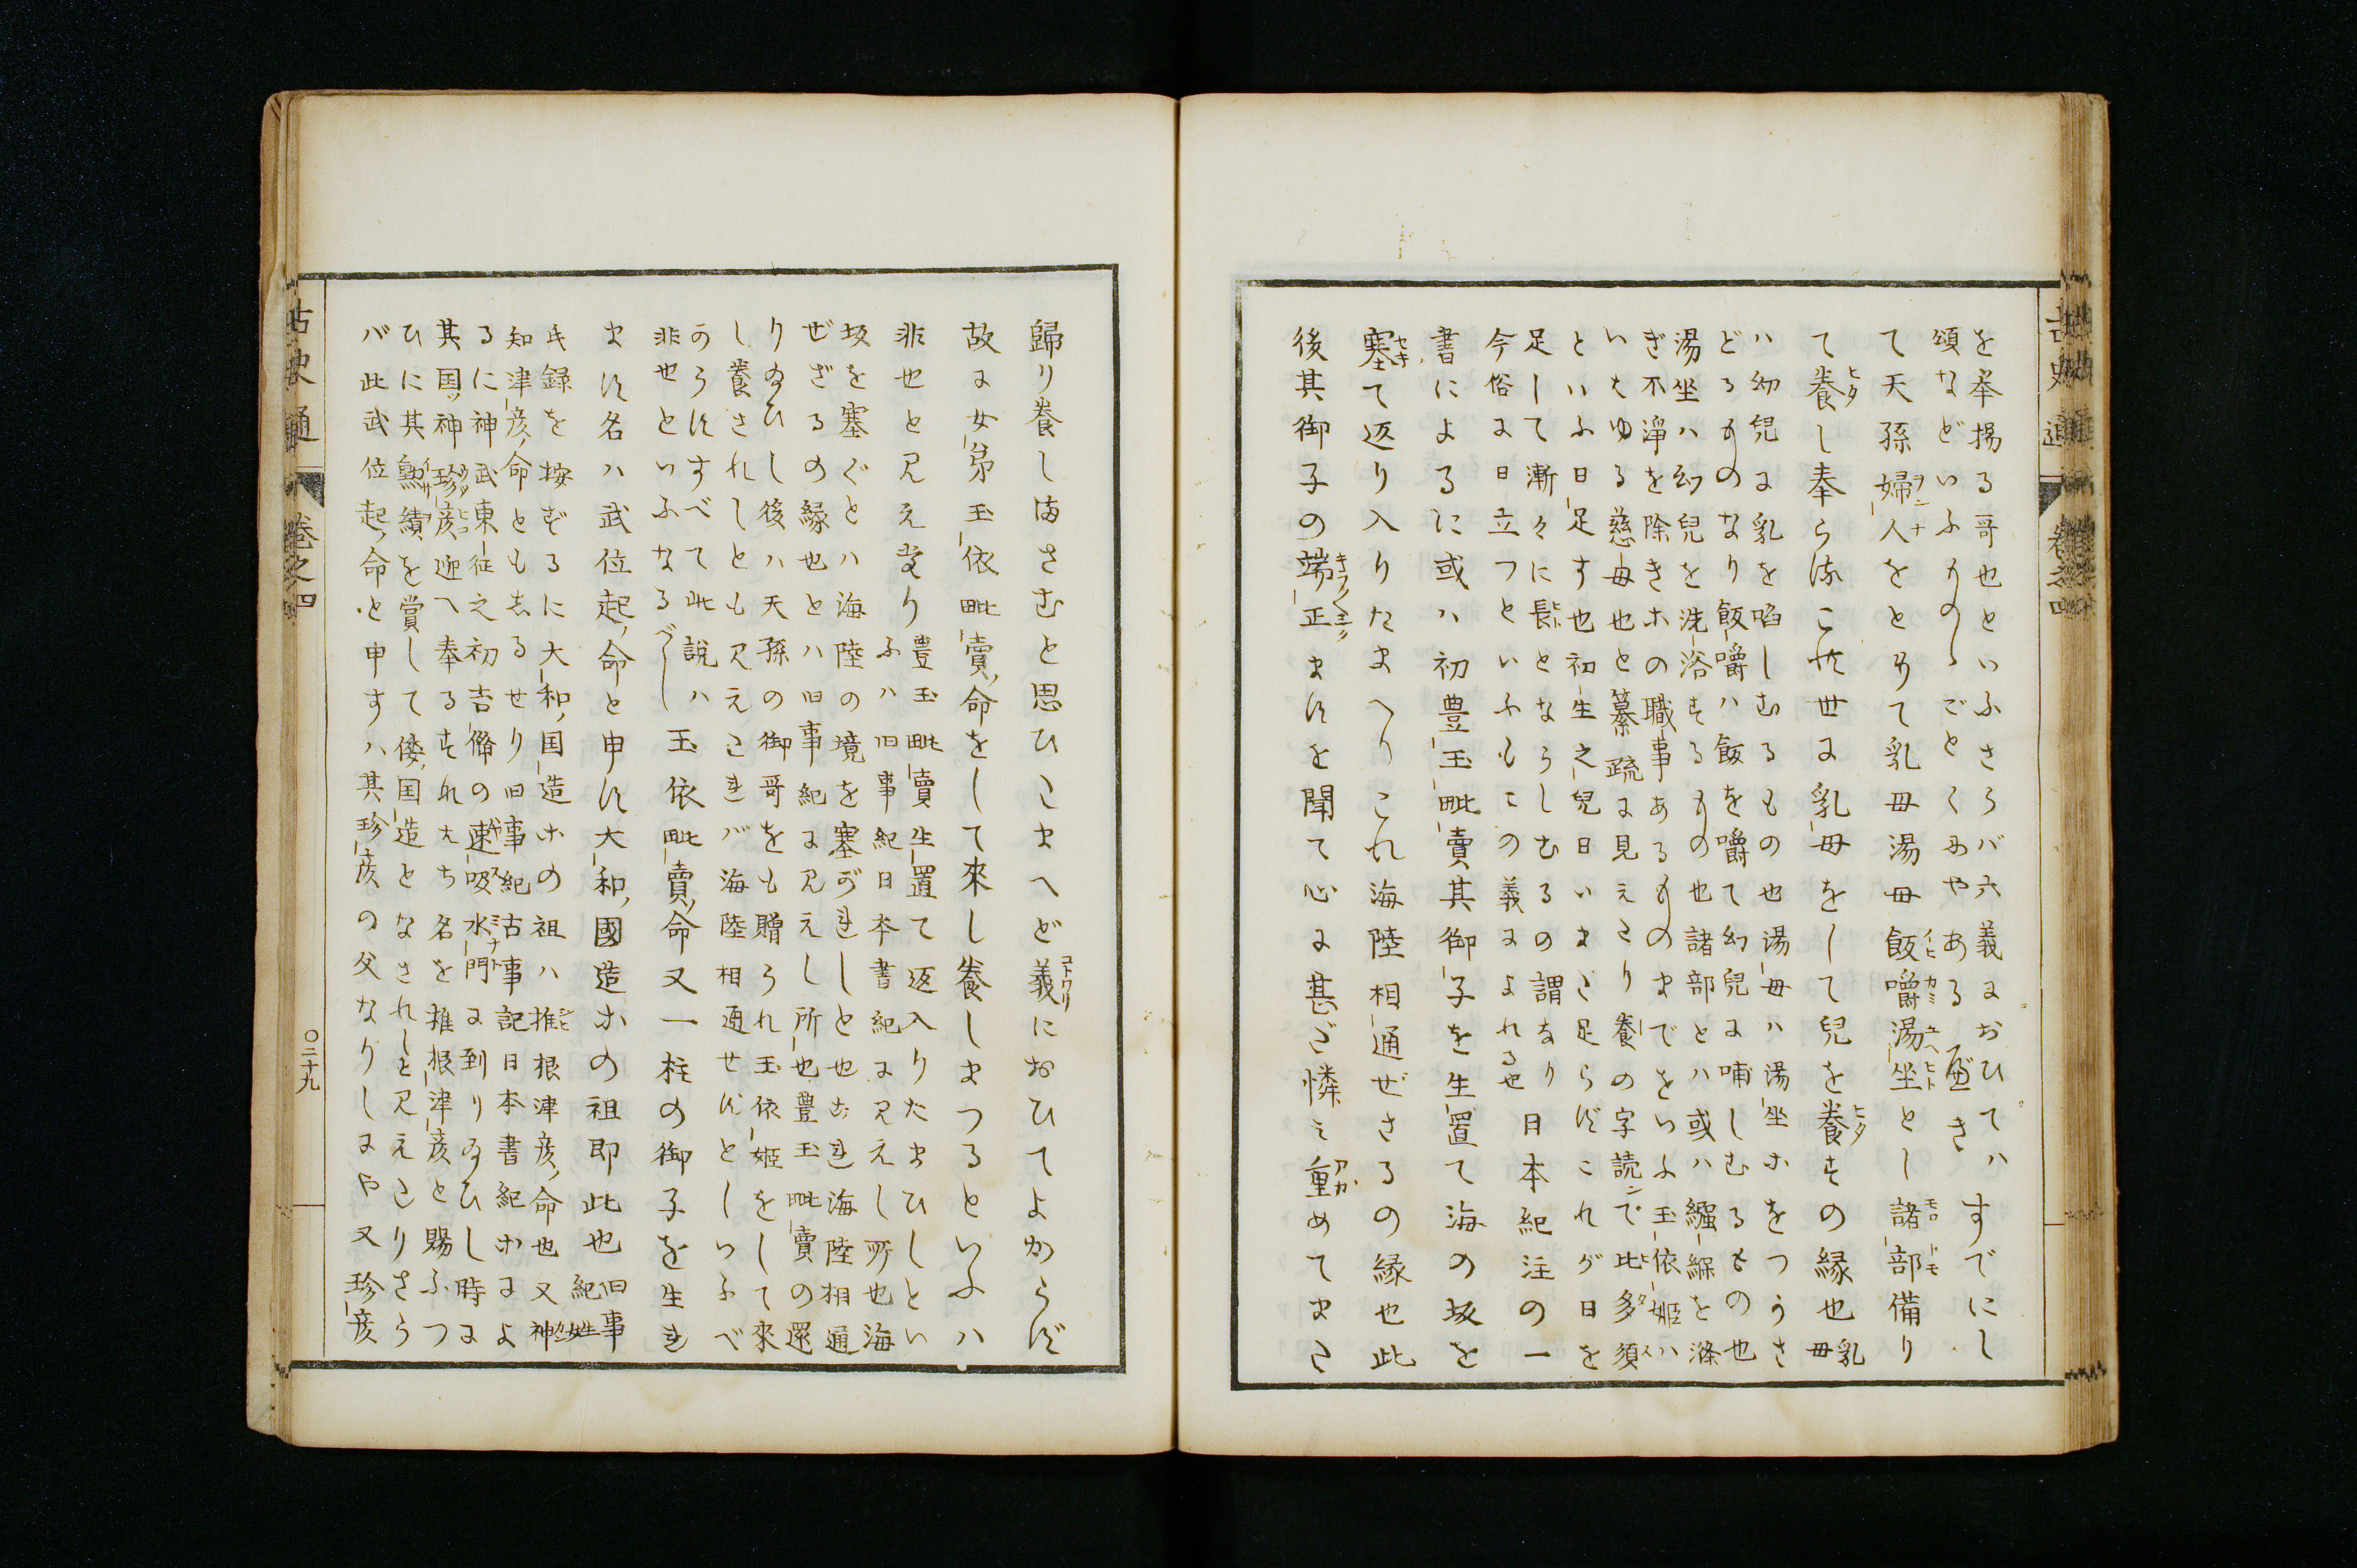 を挙揚る哥也といふさらバ六義におひてハすでにし
頌などいふものゝごとくめやある
て天孫婦人をとりて乳母湯母飯嚼湯坐とし諸部備り
て養し奉らる これ世に乳母をして兒を養すの縁也乳母
ハ幼兒に乳を啗しむるもの也湯母ハ湯坐ホをつうさ
どるものなり飯嚼ハ飯を嚼て幼兒に哺しむるもの也
湯坐ハ幼兒を洗浴するもの也諸部とハ或ハ繦緥を滌
ぎ不淨を除きホの職事あるものまでをいふ玉依姫ハ
いわゆる慈母也と纂疏に見えたり養の字読で比多須
といふ日足す也初生之兒日いまだ足らずこれが日を
足して漸々に長となうしむるの謂なり日本紀注の一
今俗に日立つといふもこの義によれる也
書によるに或ハ初豊玉毗賣其御子を生置て海の坂を
塞て返り入りたまへりこれ海陸相通ぜざるの縁也此
後其御子の端正ましを聞て心に甚だ憐み重めてまた
歸り養しまさむと思ひたまへど義におひてよからず
故に女弟玉依毗賣命をして來し養しまつるといふハ
非也と見え
豊玉毗賣生置て返入りたまひしとい
ふハ旧事紀日本書紀に見えし所也海
坂を塞ぐとハ海陸の境を塞がれしと也これ海陸相通
ぜざるの縁也とハ旧事紀に見えし所也豊玉毗賣の還
り給ひし後ハ天孫の御哥をも贈られ玉依姫をして來
し養されしとも見えたれバ海陸相通せずとしいふべ
のらずすべて此説ハ
非也といふなるべし
玉依毗賣命又一柱の御子を生れ
ます名ハ武位起命と申す大和國造ホの祖即此也旧事紀
姓
氏録を按ずるに大和国造ホの祖ハ推根津彦命也又神
知津彦命ともしるせり旧事紀古事記日本書紀ホによ
るに神武東征之初吉備の速吸水門に到り給ひし時に
其国神珍彦迎へ奉るすなわち名を推根津彦と賜ふつ
ひに其勲績を賞して倭国造となされしと見えたりさら
バ此武位起命と申すハ其珍彦の父なりしにや又珍彦
古史通
巻之四
〇二十九